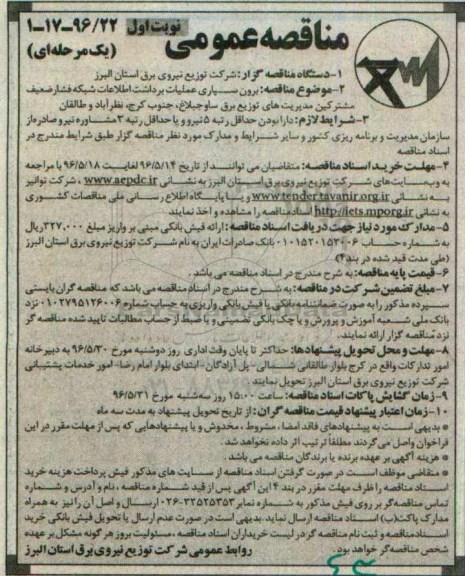 مناقصه عمومی
نوبت اول
۹۶/۲۲-۱۷-۱
(یک مرحله‌ای)
۱-دستگاه مناقصه گزار: شرکت توزیع نیروی برق استان البرز
۲-موضوع مناقصه: برون سپاری عملیات برداشت اطلاعات شبکه فشار ضعیف
مشترکین مدیریت های توزیع برق ساوجبلاغ، جنوب کرج، نظرآباد و طالقان
۳-شرایط لازم: دارا بودن حداقل رتبه ۵ نیرو و یا حداقل رتبه ۳ مشاوره نیرو صادره از
سازمان مدیریت و برنامه ریزی کشور و سایر شرایط و مدارک مورد نظر مناقصه گزار طبق شرایط مندرج در
اسناد مناقصه
۴-مهلت خرید اسناد مناقصه: متقاضیان می توانند از تاریخ ۹۶/۵/۱۴ لغایت ۹۶/۵/۱۸ با مراجعه
به وب سایت های شرکت توزیع نیروی برق استان البرز به نشانی www.aepdc.ir ، شرکت توانیر
به نشانی www.tender.tavanir.org.ir و یا پایگاه اطلاع رسانی ملی مناقصات کشوری
به نشانی http://iets.mporg.ir اسناد مناقصه را مشاهده و اخذ نمایند
۵-مدارک مورد نیاز جهت دریافت اسناد مناقصه: ارائه فیش بانکی مبنی بر واریز مبلغ ۳۲۷,۰۰۰ ریال
به شماره حساب ۰۱۰۱۵۲۰۱۵۳۰۰۶ بانک صادرات ایران به نام شرکت توزیع نیروی برق استان البرز
(طی مدت قید شده در بند۴)
۶-قیمت پایه مناقصه: به شرح مندرج در اسناد مناقصه می باشد .
۷-مبلغ تضمین شرکت در مناقصه: به شرح مندرج در اسناد مناقصه می باشد که مناقصه گران بایستی
سپرده مذکور را به صورت ضمانتنامه بانکی یا فیش بانکی واریزی به حساب شماره ۰۱۰۲۷۹۵۱۲۶۰۰۶ نزد
بانک ملی شعبه آموزش و پرورش و یا چک بانکی تضمینی و یا ضبط از حساب مطالبات تایید شده مناقصه گر
نزد مناقصه گزار ارائه نمایند.
۸-مهلت و محل تحویل پیشنهادها: حداکثر تا پایان وقت اداری روز دوشنبه مورخ ۹۶/۵/۳۰ به دبیرخانه
امور تدارکات واقع در کرج بلوار طالقانی شمالی- پل آزادگان- ابتدای بلوار امام رضا- امور خدمات پشتیبانی
شرکت توزیع نیروی برق استان البرز تحویل نمایند
۹-زمان گشایش پاکات اسناد مناقصه: ساعت ۱۵:۰۰ روز سه شنبه مورخ ۹۶/۵/۳۱
۱۰-زمان اعتبار پیشنهاد قیمت مناقصه گران: از تاریخ تحویل پیشنهاد به مدت سه ماه
* بدیهی است به پیشنهادهای فاقد امضا ، مشروط ، مخدوش و یا پیشنهادهایی که پس از مهلت مقرر در این
فراخوان واصل می گردند مطلقا ترتیب اثر داده نخواهد شد.
* هزینه آگهی بر عهده برنده یا برندگان مناقصه می باشد .
* متقاضی موظف است در صورت گرفتن اسناد مناقصه از سایت های مذکور فیش پرداخت هزینه خرید
اسناد مناقصه را ظرف مهلت مقرر در بند ۴ این آگهی پس از قید شماره مناقصه ، نام و آدرس و شماره
تماس مناقصه گر بر روی فیش مذکور به شماره نمابر ۳۲۵۲۵۳۵۳-۰۲۶ ارسال و اصل آن را نیز به همراه
مدارک پاکت(ب) اسناد مناقصه ارسال نماید. بدیهی است در صورت عدم ارسال یا تحویل فیش بانکی خرید
اسناد مناقصه و ثبت نام مناقصه گر در لیست خریداران اسناد مناقصه ، مسئولیت بروز هر گونه مشکل بر عهده
شخص مناقصه گر خواهد بود.
روابط عمومی شرکت توزیع نیروی برق استان البرز